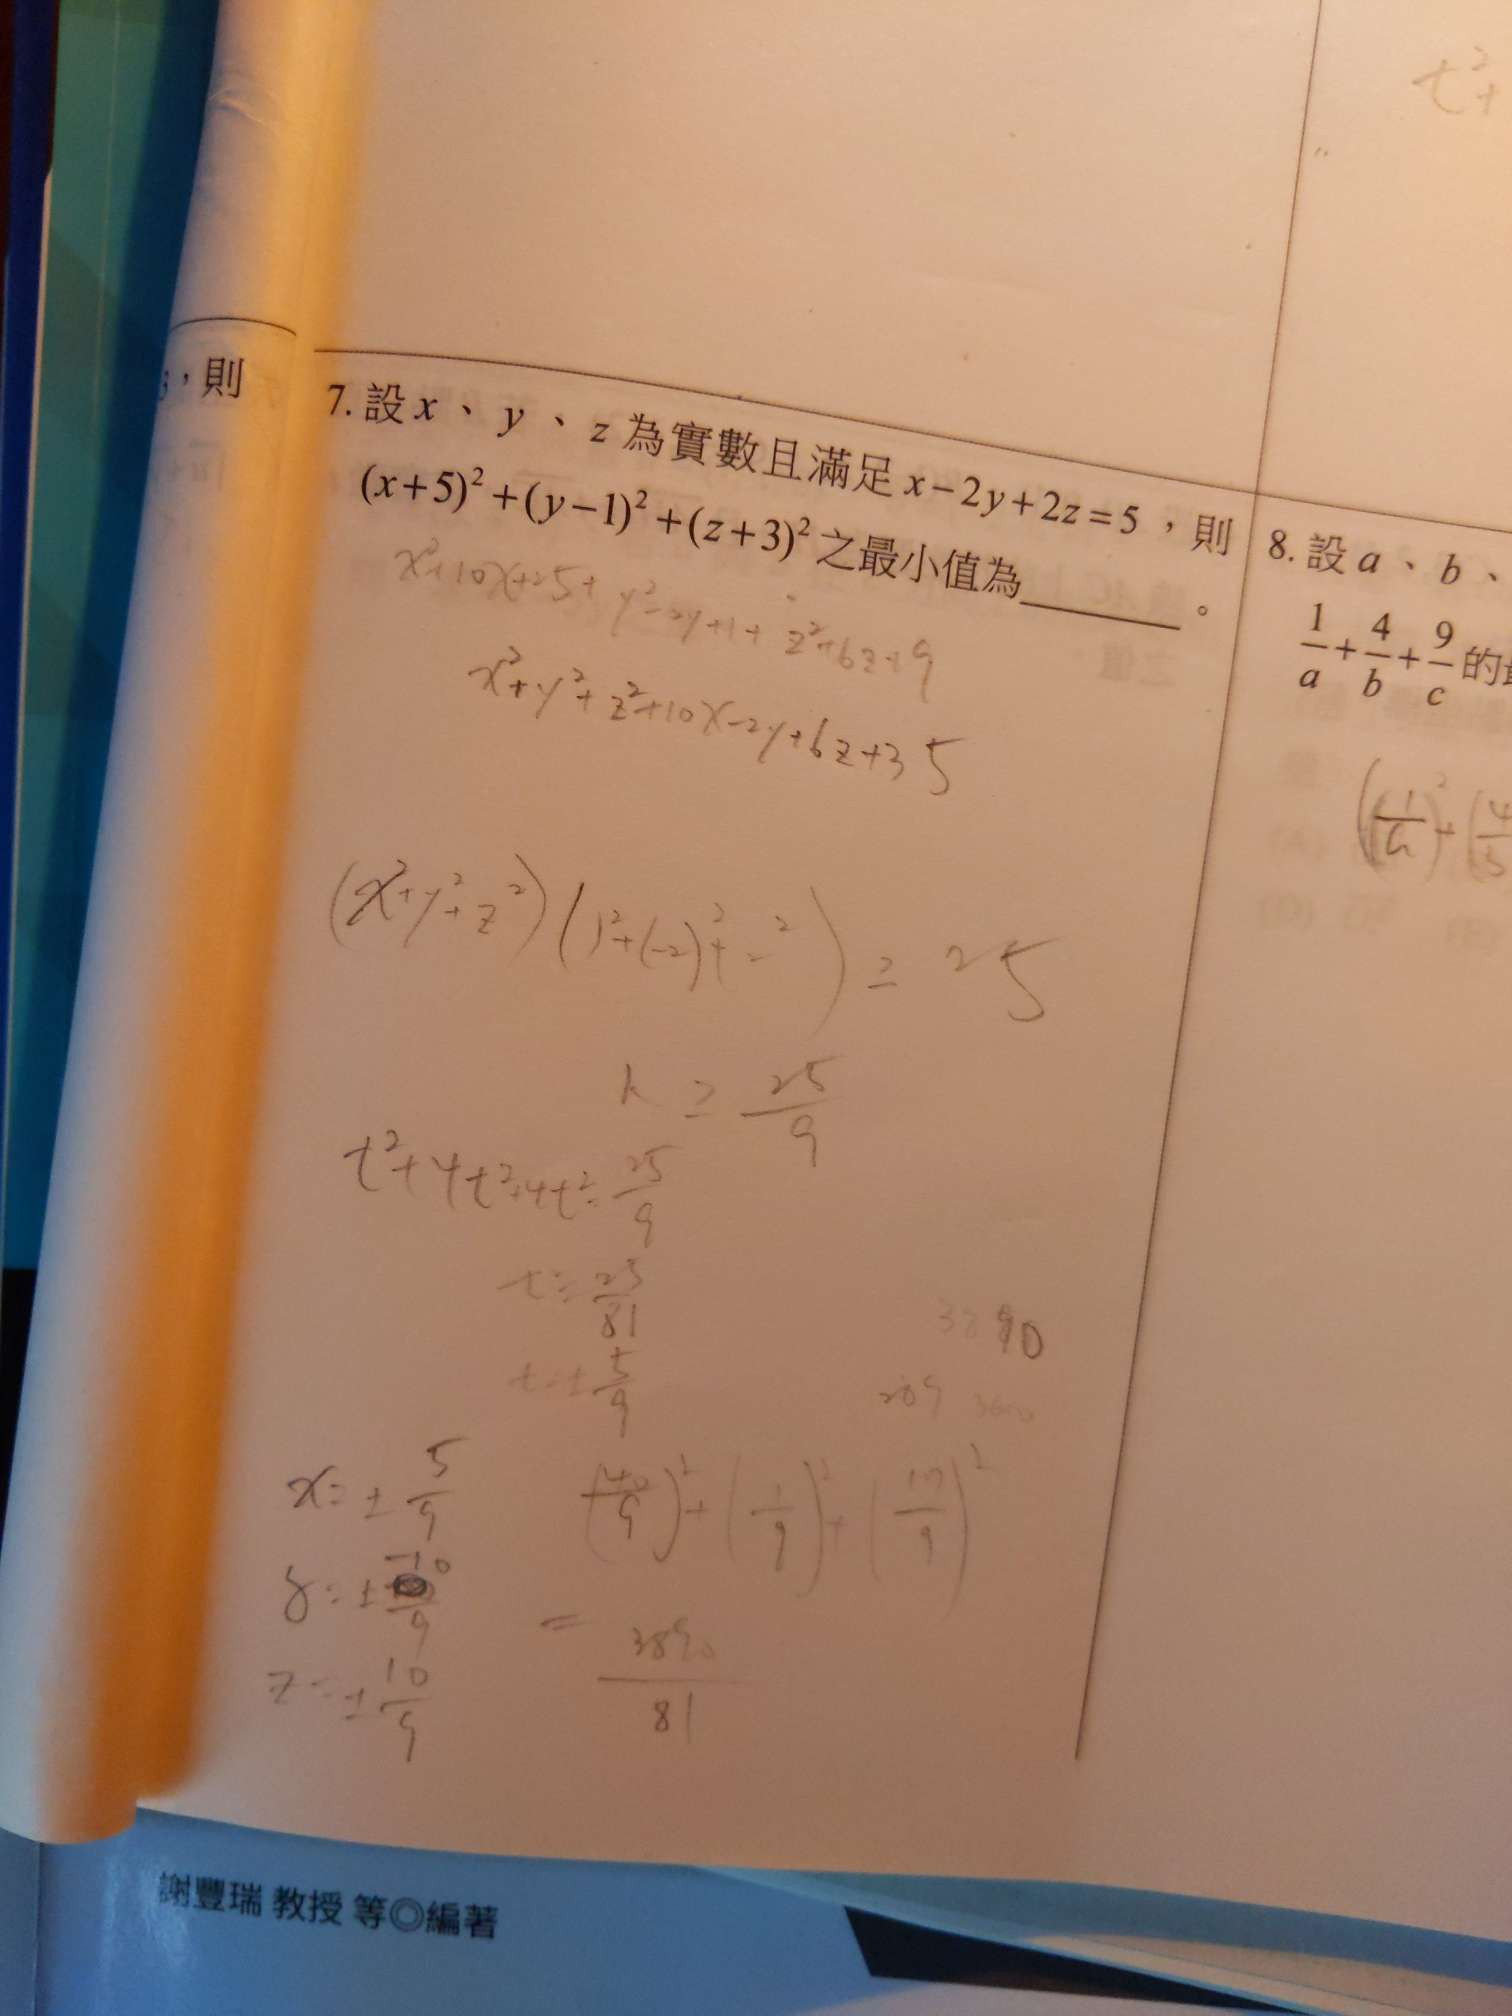 t²+
，則
7. 設 x 、 y 、 z 為實數且滿足 x−2y+2z=5 ，則
(x+5)²+(y−1)²+(z+3)² 之最小值為______。
x²+10x+25+y²−2y+1+z²+6z+9
x²+y²+z²+10x−2y+6z+35
(x²+y²+z²)(1²+(−2)²+2²) ≥ 25
k ≥ 25/9
t²+4t²+4t²=25/9
t²=25/81
t=±5/9
3890
289 3600
x=±5/9
y=±−10/9
z=±10/9
(40/9)²+(1/9)²+(17/9)²
= 3890/81
8. 設 a 、 b 、
1/a+4/b+9/c 的
謝豐瑞 教授 等◎編著